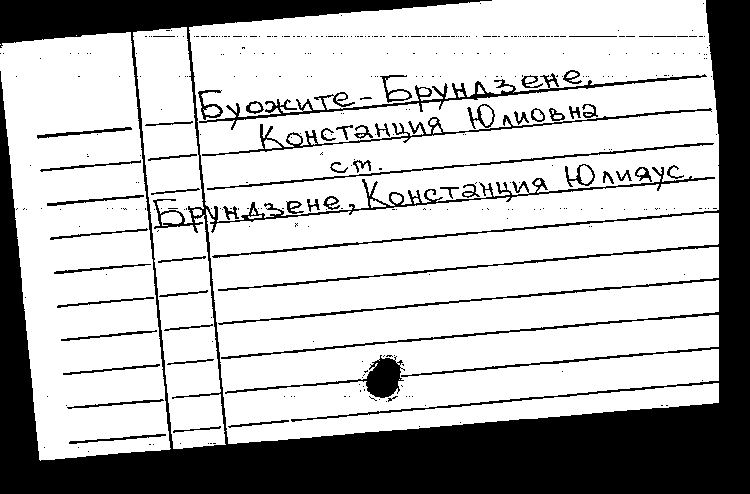 Буожите-Брундзене,
Констанция Юлиовна.
ст.
Брундзене, Констанция Юлияус.